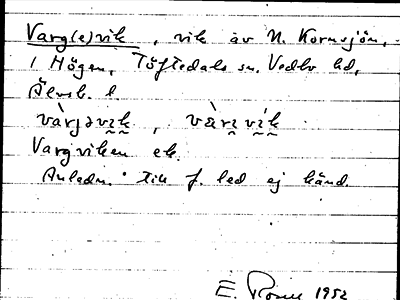 Varg(e)vik, vik av N. Kornsjön,
i Högen, Töftedals sn. Vedbo hd,
Älvsb. l.
vàrjəvi̭k, vàri̭ ví̭k
Vargviken ek.
Anledn. till f. led ej känd.
E. 1952